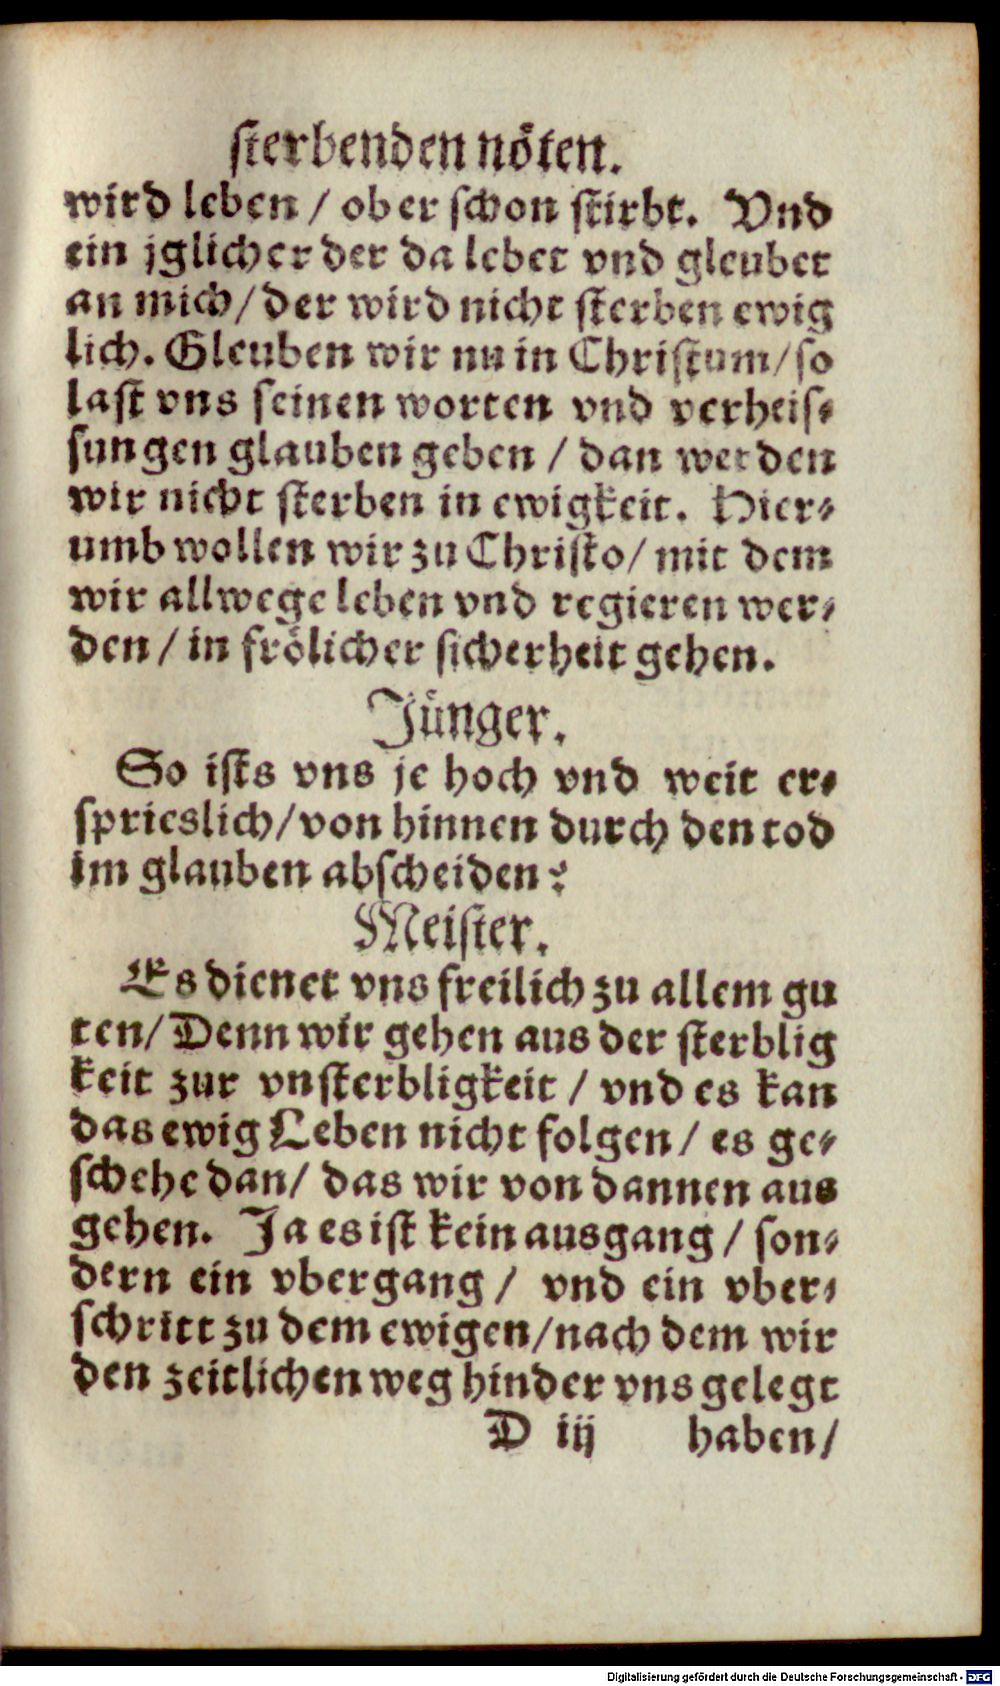 sterbenden nöten.
wird leben / ob er schon stirbt. Vnd
ein jglicher der da lebet vnd gleubet
an mich/ der wird nicht sterben ewig
lich. Gleuben wir nu in Christum/ so
last vns seinen worten vnd verheis⸗
sungen glauben geben / dan werden
wir nicht sterben in ewigkeit. Hier⸗
umb wollen wir zu Christo/ mit dem
wir allwege leben vnd regieren wer⸗
den / in frölicher sicherheit gehen.
Jünger.
So ists vns je hoch vnd weit er⸗
sprieslich/ von hinnen durch den tod
im glauben abscheiden?
Meister.
Es dienet vns freilich zu allem gu
ten/ Denn wir gehen aus der sterblig
keit zur vnsterbligkeit / vnd es kan
das ewig Leben nicht folgen/ es ge⸗
schehe dan/ das wir von dannen aus
gehen. Ja es ist kein ausgang / son⸗
dern ein vbergang / vnd ein vber⸗
schritt zu dem ewigen/ nach dem wir
den zeitlichen weg hinder vns gelegt
D iij haben/
Digitalisierung gefördert durch die Deutsche Forschungsgemeinschaft - DFG